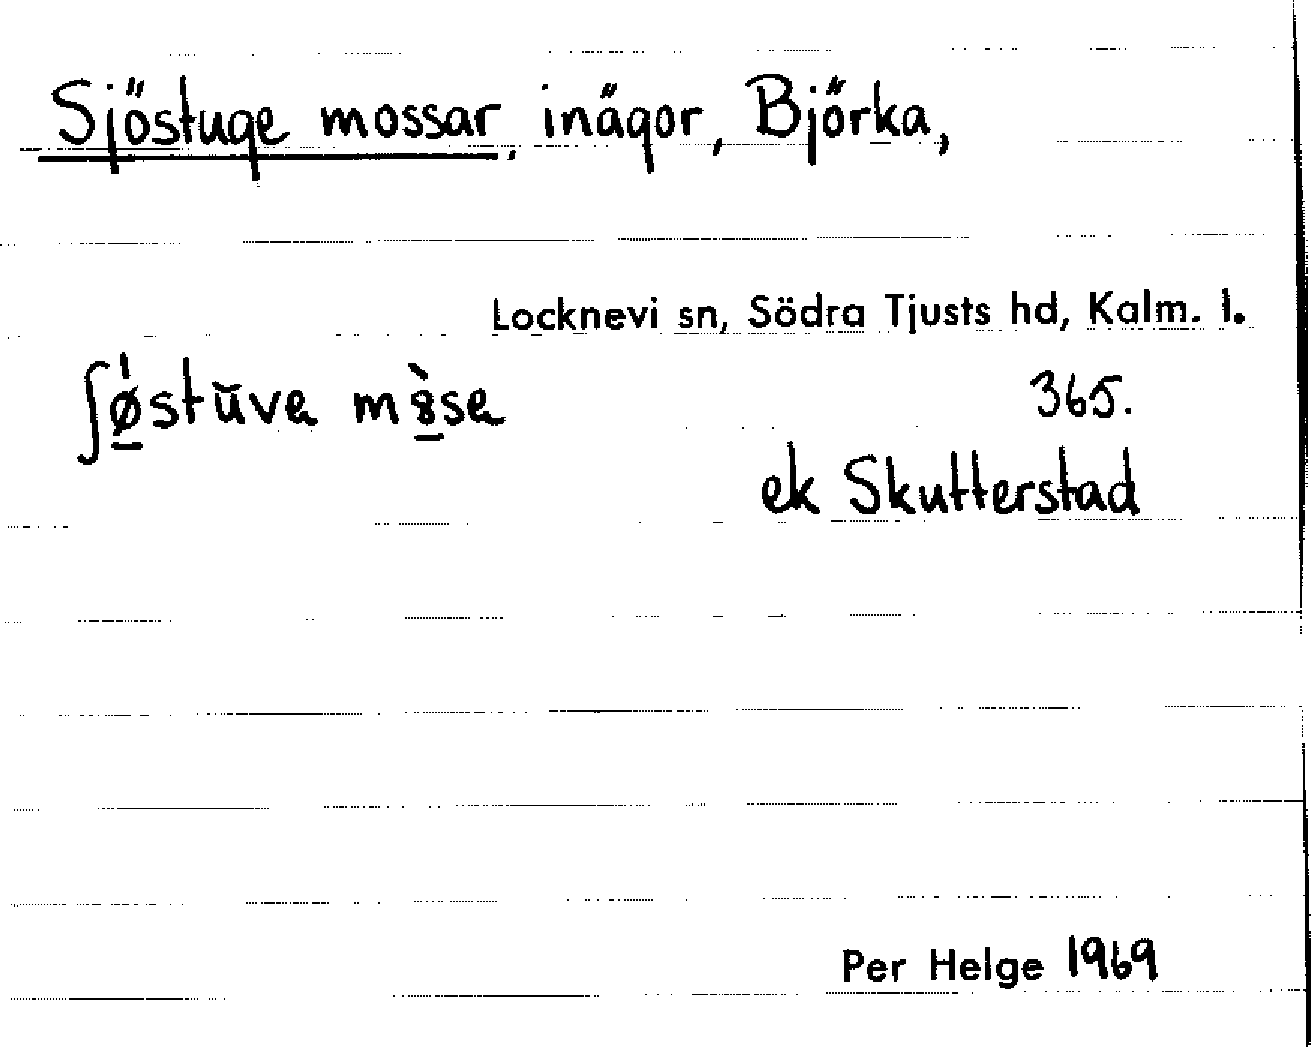 Sjöstuge mossar, inägor, Björka,
Locknevi sn, Södra Tjusts hd, Kalm. l.
ʃǿ̱stŭva 365.
ek Skutterstad
Per Helge 1969